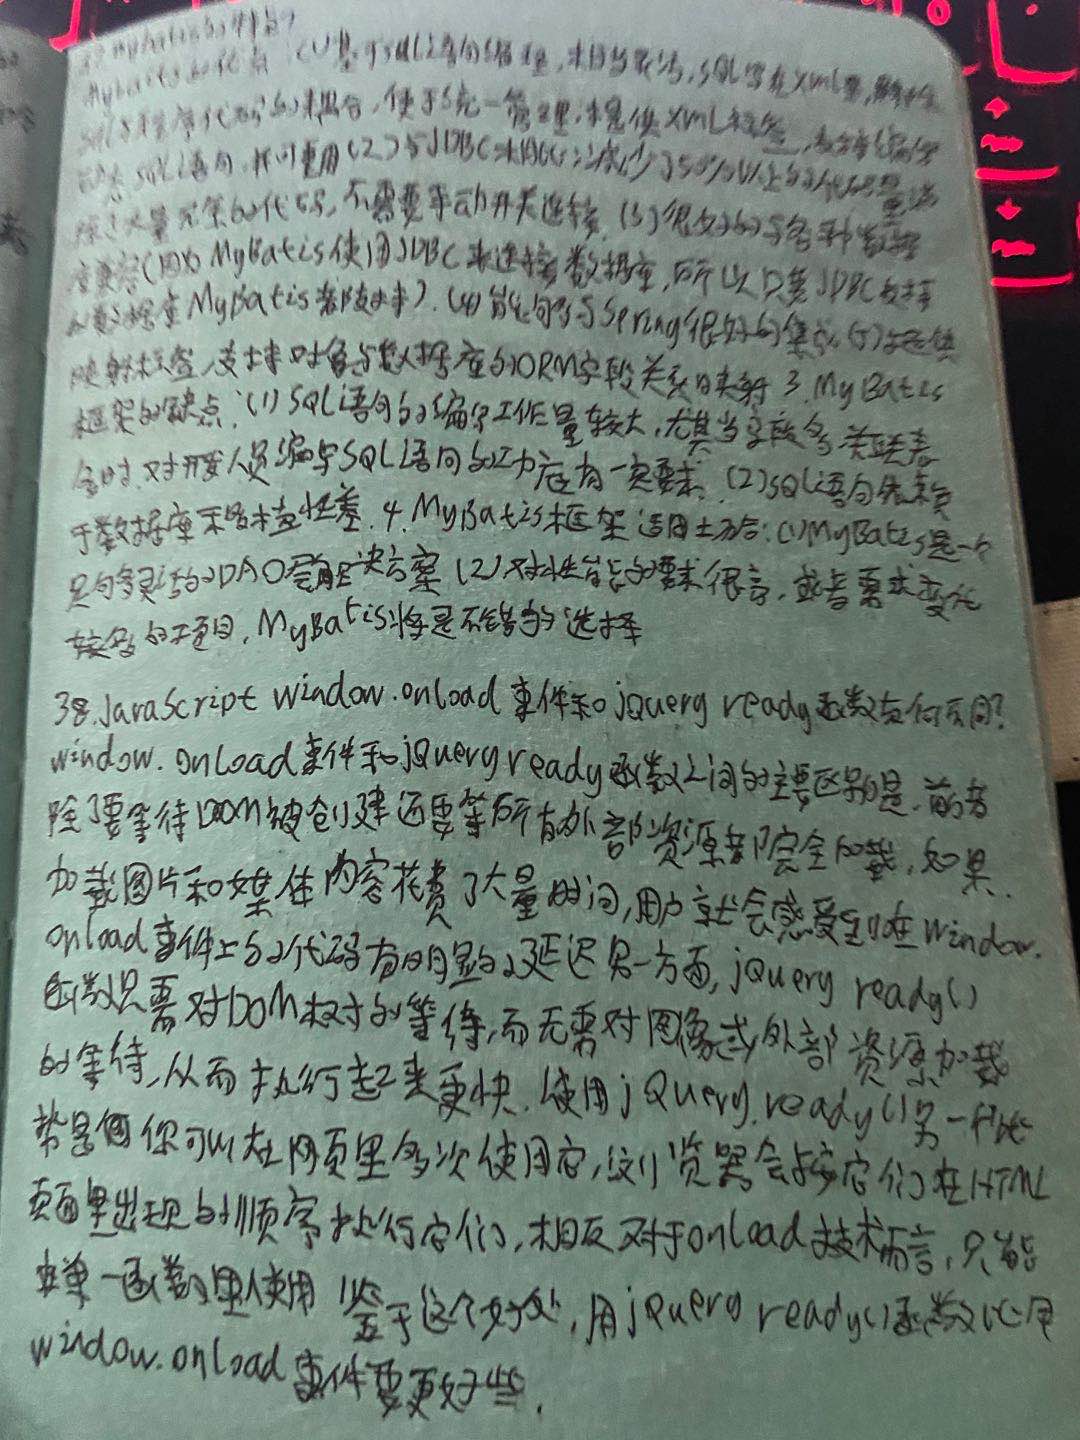 MyBatis的优点:(1)基于SQL语句编程,相当灵活,SQL写在XML里,解除
SQL与程序代码的耦合,便于统一管理,提供XML标签,支持编写
动态SQL语句,并可重用(2)与JDBC相比,减少了50%以上的代码量,消
除了大量冗余的代码,不需要手动开关连接,(3)很好的与各种数据
库兼容(因为MyBatis使用JDBC来连接数据库,所以只要JDBC支持
的数据库MyBatis都支持).(4)能够与Spring很好的集成(5)提供
映射标签,支持对象与数据库的ORM字段关系映射 3.MyBatis
框架的缺点:(1)SQL语句的编写工作量较大,尤其当字段多、关联表
多时,对开发人员编写SQL语句的功底有一定要求.(2)SQL语句依赖
于数据库,移植性差.4.MyBatis框架适用场合:(1)MyBatis是一个
足够灵活的DAO层解决方案(2)对性能的要求很高,或者需求变化
较多的项目,MyBatis将是不错的选择
38.JavaScript window.onload事件和jQuery ready函数有何不同?
window.onload事件和jQuery ready函数之间的主要区别是,前者
除了要等待DOM被创建还要等所有外部资源都完全加载,如果
加载图片和媒体内容花费了大量时间,用户就会感受到在window.
onload事件上的代码有明显的延迟另一方面,jQuery ready()
函数只需对DOM树的等待,而无需对图像或外部资源加载
的等待,从而执行起来更快.使用jQuery ready()另一个优
势是 你可以在网页里多次使用它,浏览器会按它们在HTML
页面里出现的顺序执行它们,相反对于onload技术而言,只能
在单一函数里使用 鉴于这个好处,用jQuery ready()函数比用
window.onload事件要更好些.